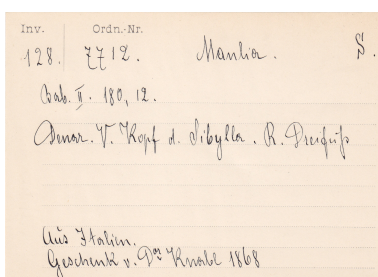 Inv. Ordn.-Nr.
128. 7712. Manlia. S.
Bab. II. 180, 12.
Denar. V. Kopf d. Sibylla. R. Dreifuß
Aus Italien.
Geschenk v. Dr Knabl 1868